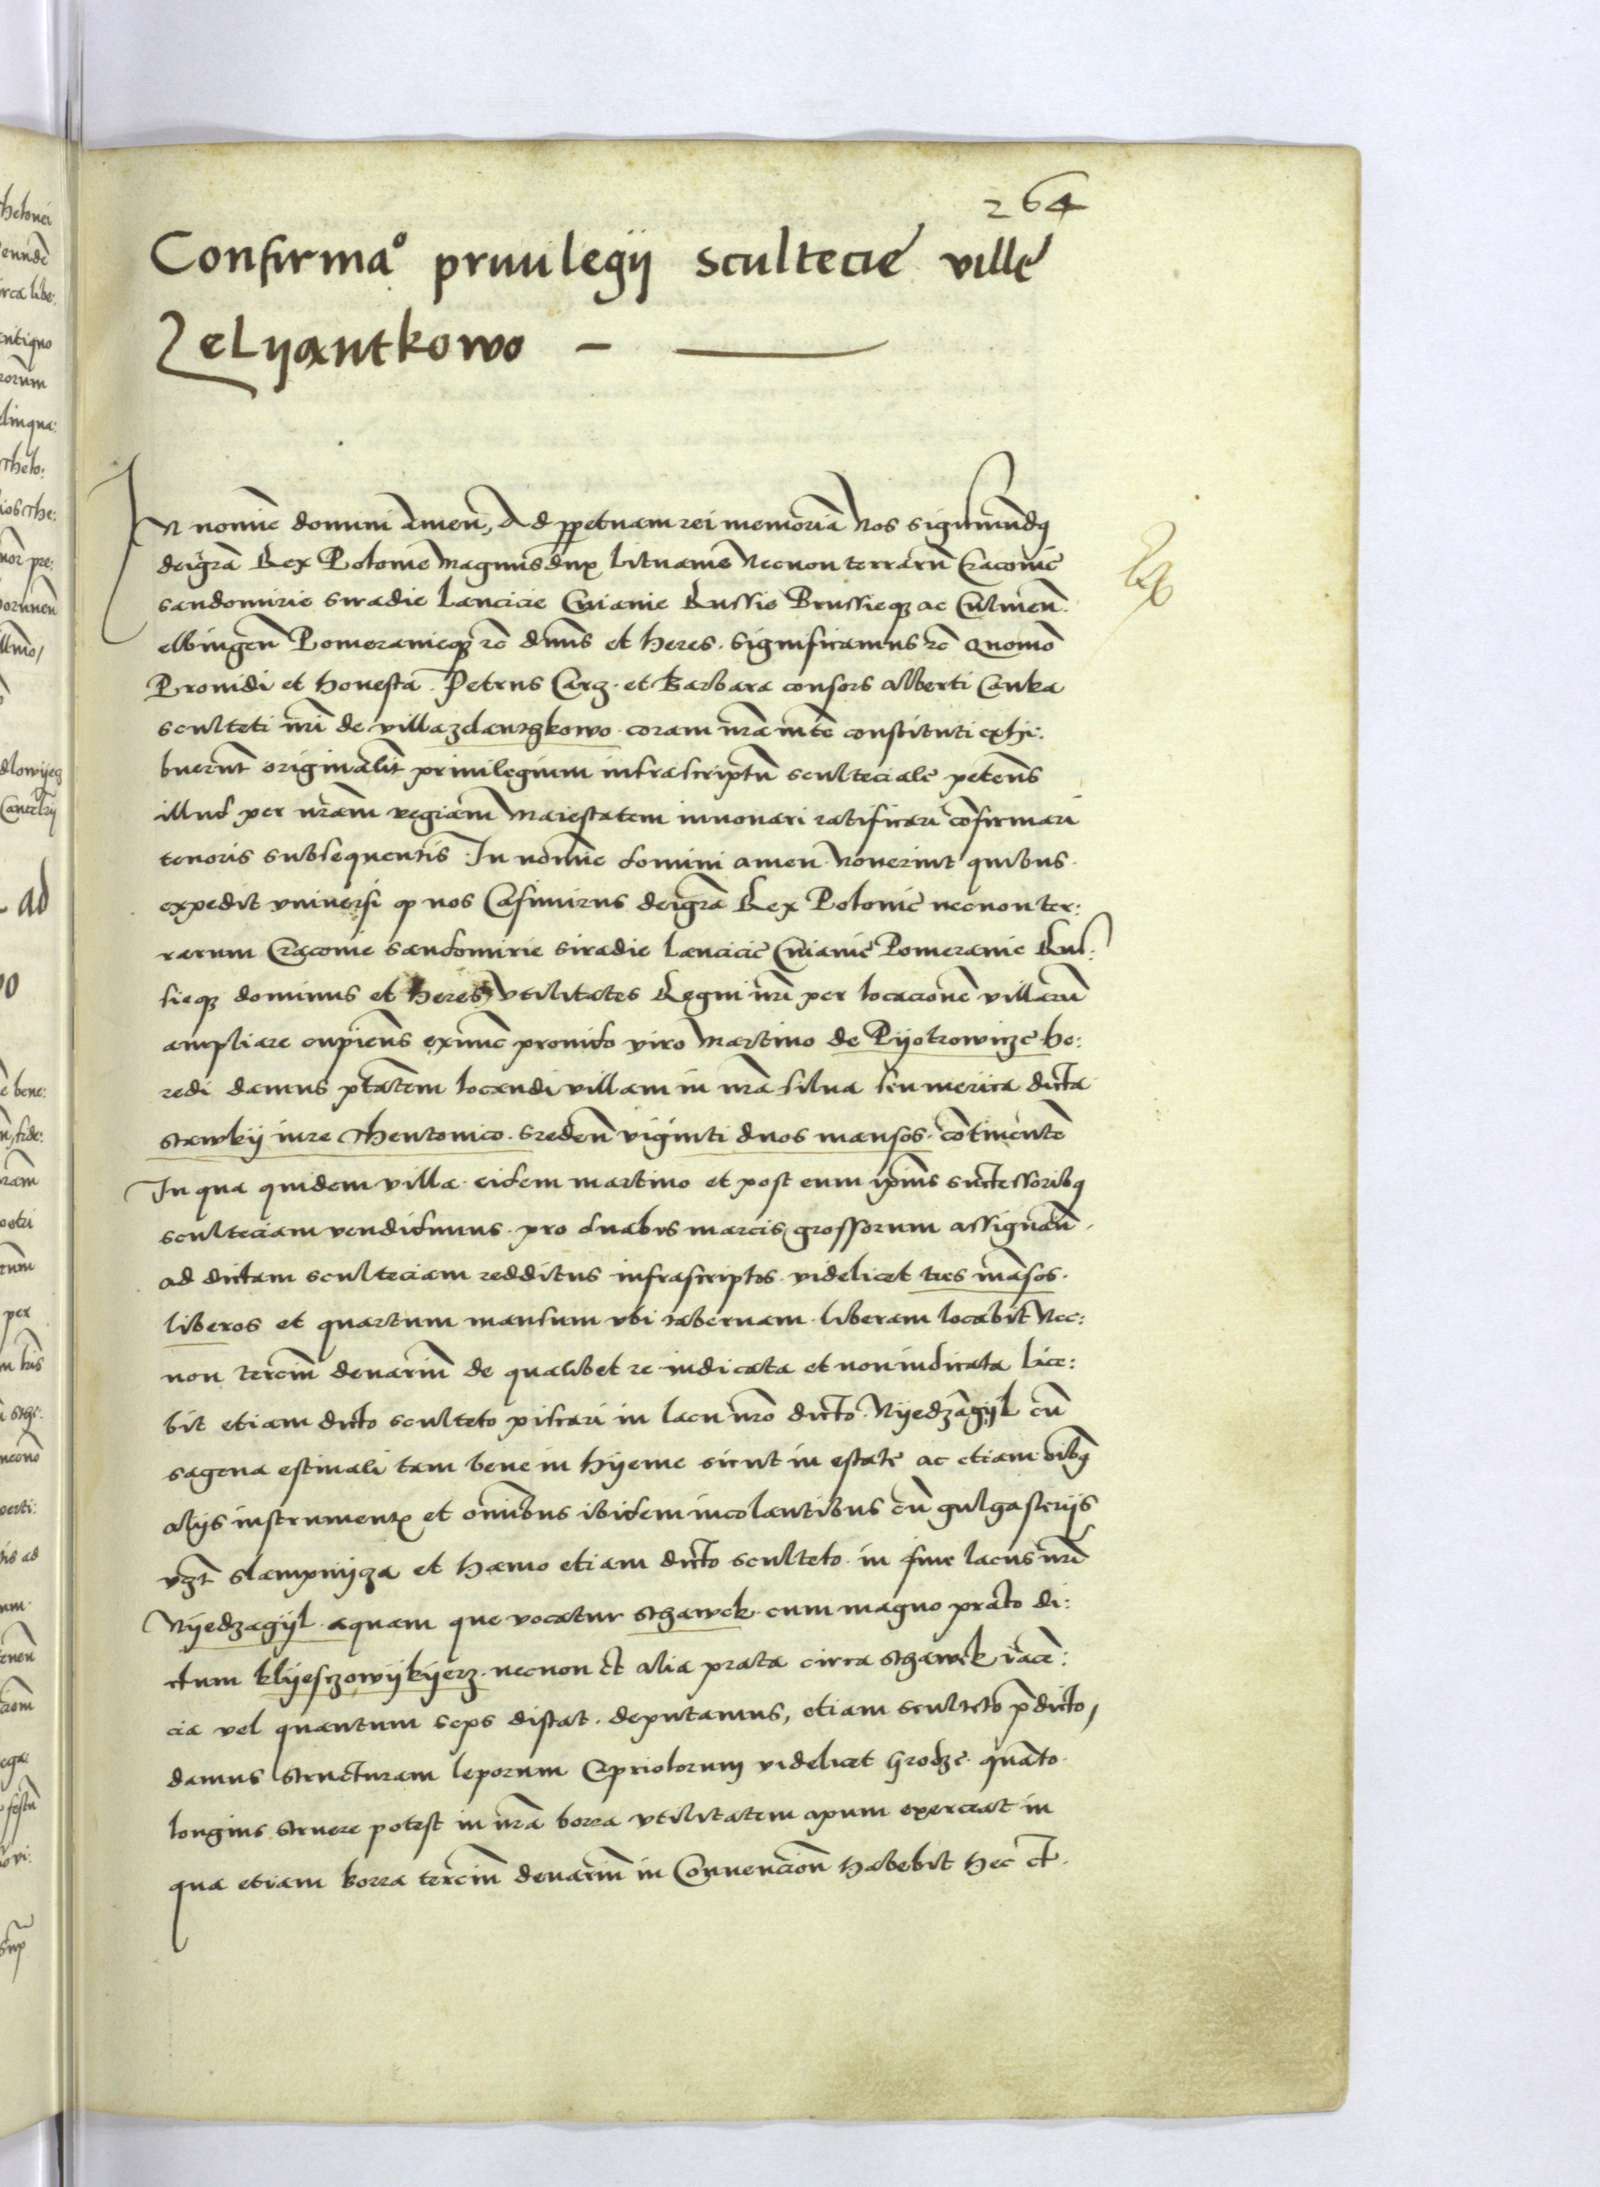 264
Confirmaᵒ priuilegij scultecie ville
Zelyantkowo
In nomīe domini amen, Ad ꝑpetuam rei memoriā Nos sigismūdꝯ
deigrā Rex Polonie Magnusdux lituanie Necnon terrarū Cracovie
sandomirie siradie Lancicie Cuiauie Russie Prussieqꝫ ac Culmeñ.
elbingeñ Pomeranieqꝫ rc̄ dn̄us et heres. significamus rc̄ Quomō
Prouidi et honesta. Petrus Carz. et Barbara consors alberti Canka
sculteti nr̄i de villa zdantzkowo. coram nr̄a mt̄e constituti exhi:
buerūt originalit̄ priuilegium infrascriptū sculteciale petens̄
illud per nr̄am regiam Maiestatem innouari ratificari cōfirmari
tenoris subsequentis In nomīe domini amen. Nouerint quibus.
expedit vniuersi ꝙ nos Casimirus deigrā Rex Polonie necnon ter:
rarum Cracouie sandomirie siradie Lancicie Cuiauie Pomeranie Rus:
sieqꝫ dominus et heres, vtilitates Regni nr̄i per locacionē villarū
ampliare cupiens exnūc prouido viro Martino de Pyotrowicze he:
redi damus ptātem locandi villam in nr̄a silua seu merica dicta
stawky iure theutonico. sredeñ viginti duos mansos. cōtinentē
In qua quidem villa. eidem martino et post eum ip̄ius successoribꝯ
sculteciam vendidimus. pro duabus marcis grossorum assignañ.
ad dictam sculteciam redditus infrascriptos. videlicet tres māsos.
liberos et quartum mansum vbi tabernam. liberam locabit Nec:
non terciū denariū de qualibet re iudicata et non iudicata Lice:
bit etiam dicto sculteto piscari in lacu nr̄o dicto. Nyedzāgyl cū
sagena estiuali tam bene in hyeme sicut in estate ac etiam oībꝯ
alijs instrumentꝭ et om̄ibus ibidem incolantibus cū gulgasterijs
vꝫt slampnycza et hamo etiam dicto sculteto. in fine lacus nr̄i
Nyedzagyl. aquam que vocatur sthawek. cum magno prato di:
ctum klyesczowykyerz. necnon et alia prata circa sthawek iace:
cia vel quantum seps distat. deputamus, etiam sculteto p̄dicto,
damus structuram leporum Capriolorum videlicet Grodze. quāto.
longius struere potest in nr̄a borra vtilitatem apum exerceat in
qua etiam borra terciū denariū in Conuencioñ habebit hec et.